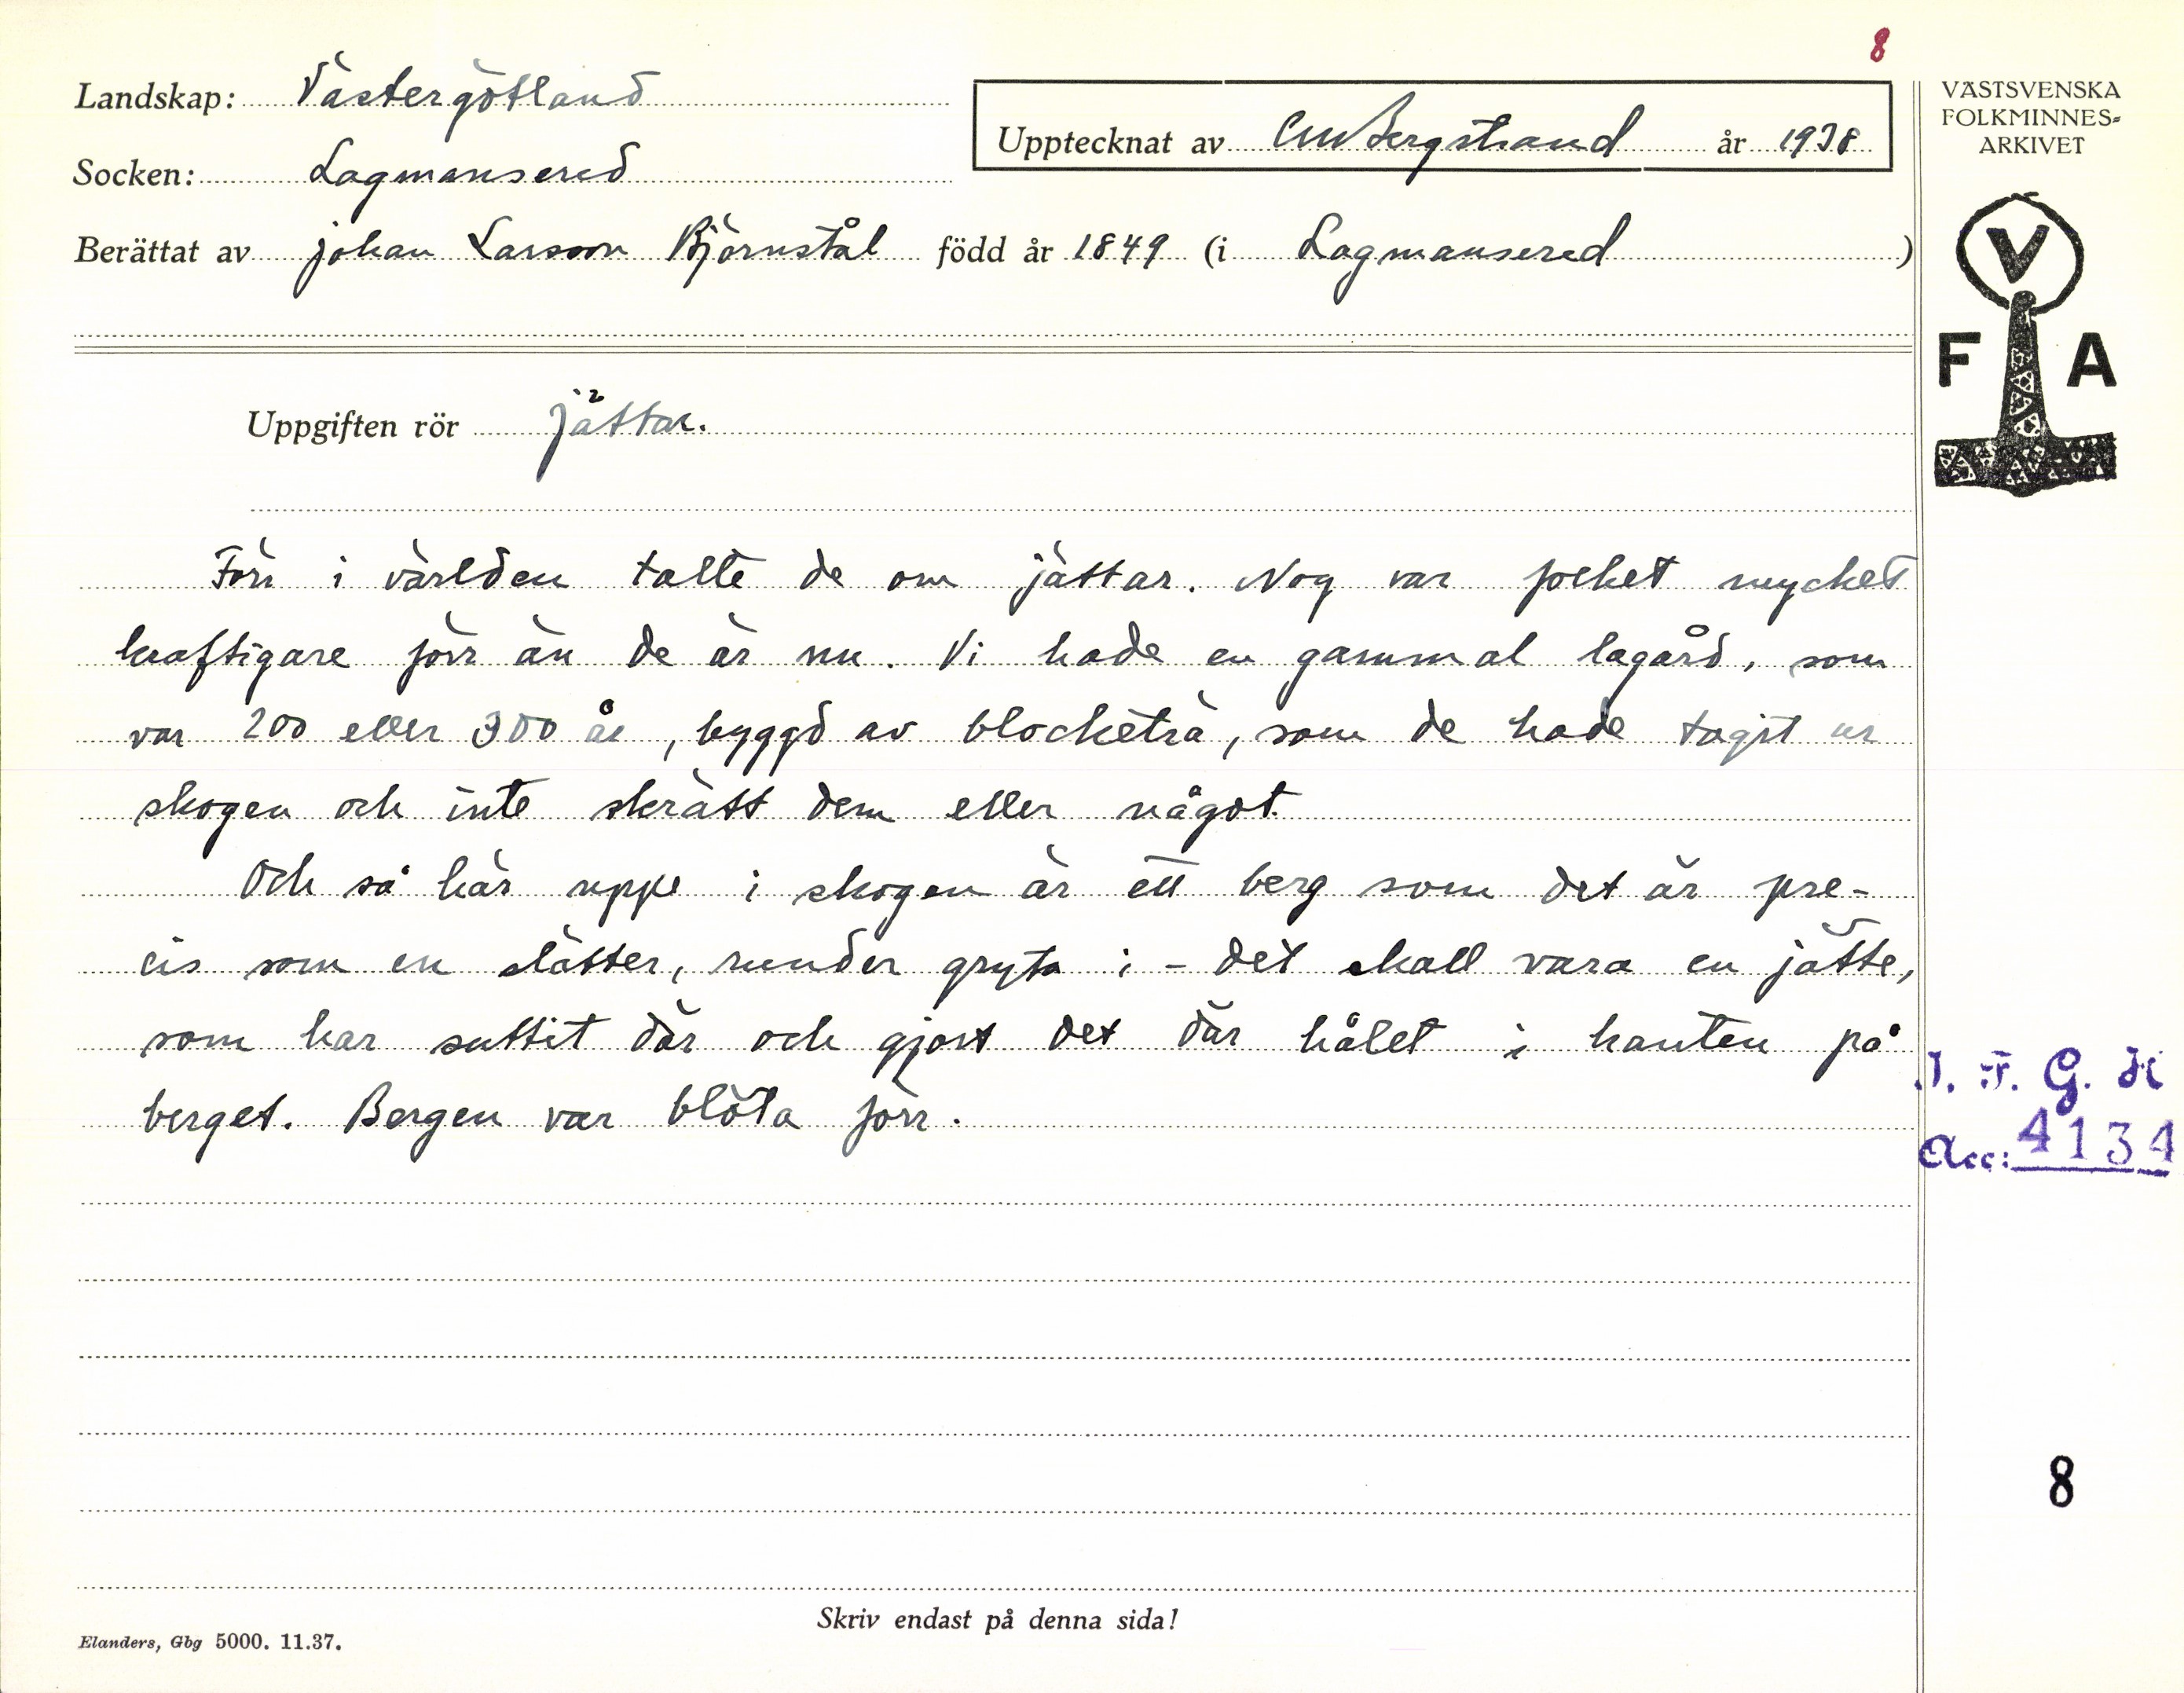 8
Landskap: Västergötland
Upptecknat av CMBergstrand år 1938
Socken: Lagmansered
Berättat av Johan Larsson Björnstål född år 1849 (i Lagmansered)
VÄSTSVENSKA
FOLKMINNES-
ARKIVET
V
F A
Uppgiften rör Jättar.
Förr i världen talte de om jättar. Nog var folket mycket
kraftigare förr än de är nu. Vi hade en gammal lagård, som
var 200 eller 300 år, byggd av blocketrä, som de hade tagit ur
skogen och inte skrätt dem eller något.
Och så här uppe i skogen är ett berg som det är pre-
cis som en slätter, runder gryta i - det skall vara en jätte,
som har suttit där och gjort det där hålet i kanten på
berget. Bergen var blöta förr.
Acc: 4134
8
Skriv endast på denna sida!
Elanders, Gbg 5000. 11.37.